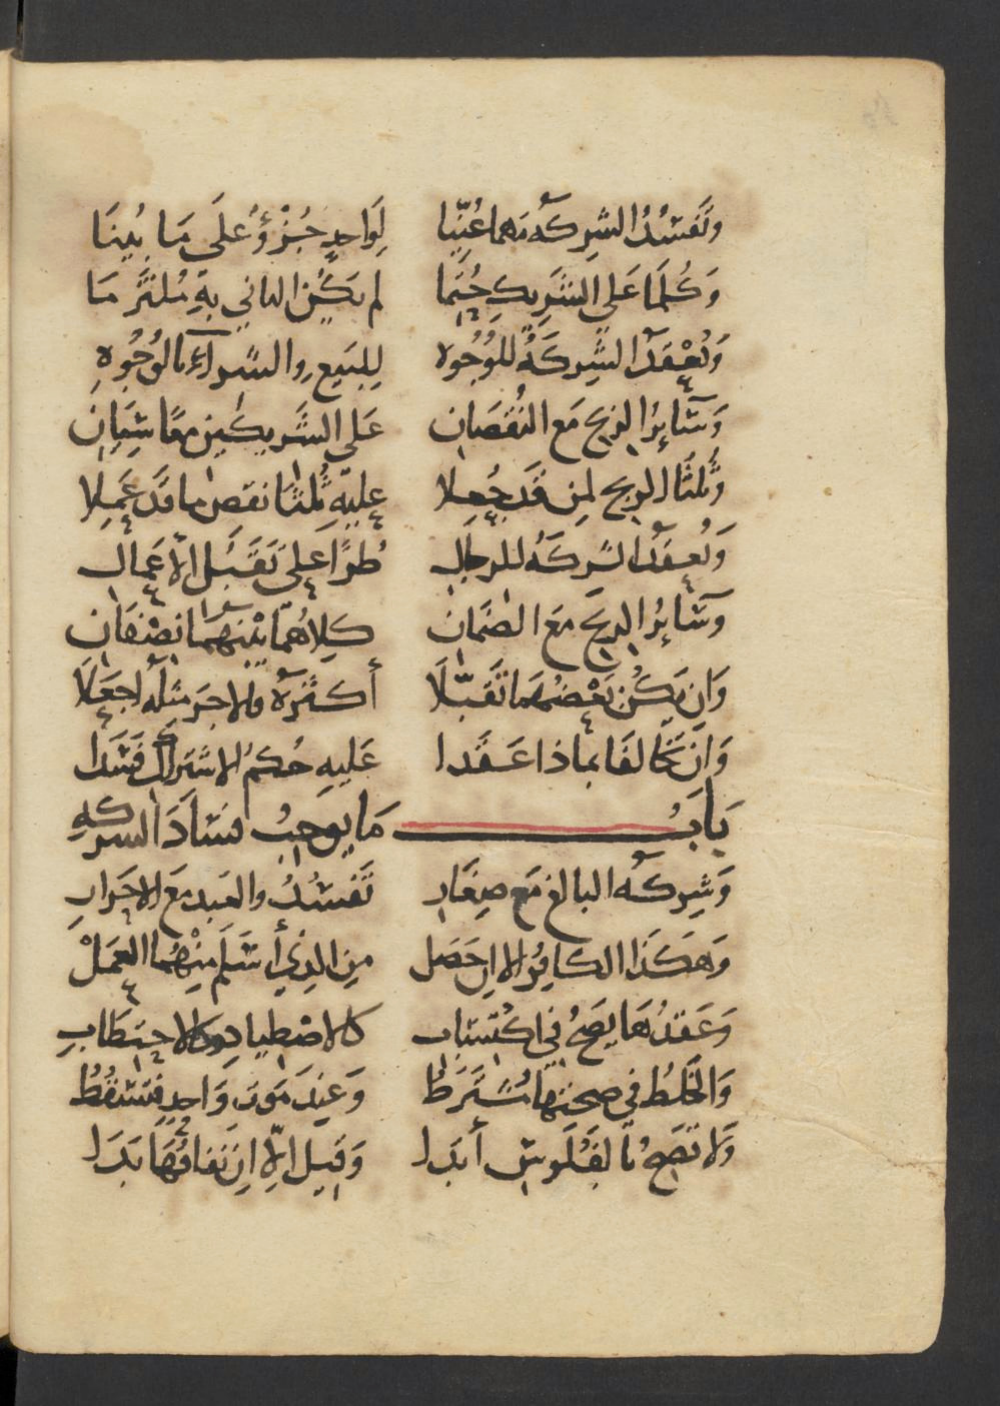 وَتَفسُدُ الشِركَه مَهما عُيِّنا لِوَاحدٍ جُزْؤٌ عَلَى مَا بُينَا
وَكُلمَا عَلى الشَرِيكِ حُتِمَا لم يَكُن الثاني بِهِ مُلتَزِمَا
وَتُعْقَدُ الشِركَةُ للوُجُوه لِلبَيعِ والشراءِ بالوُجُوهِ
وَسَائِرُ الربحِ مَع النُقصَانِ عَلى الشَريكَينِ معًا سِيَانِ
وثُلثَا الربح لمن قَد جُعِلا عليهِ ثُلثَا نقص ما قَد عَمِلا
وَتُعقَدُ الشركَه للرجالِ طُرًا عَلى تَقَبُلِ الأعمَالِ
وسَائِرُ الربحِ مَعَ الضَمَانِ كلاهُمَا بَيْنَهُمَا نِصْفَانِ
وَان يَكُن بَعْضُهمَا تَقَبَّلَا أكثرَهُ فالاجرَ مثلَه اجعَلَا
وَان تخَالفَا بماذا عَقَدا عَليهِ حُكمُ الاشتراك فَسَدا
بَابُ مَا يُوجبُ فسَادَ الشركَهِ
وَشِركَه البالغ مَع صِغَارِ تَفسُدُ والعَبدِ مَعَ الاحرَارِ
وَهَكَذا الكافِرُ الا ان حَصَل مِن الذِي أسلَمَ مِنْهُمَا العَمَلْ
وَعَقدُهَا يَصحُ في اكتسَابِ كالاصْطِيادِ وكالاحتِطَابِ
وَالخَلطُ في صحتِهَا مُشتَرَطُ وَعِندَ مَوتِ وَاحدٍ فتَسقُطُ
وَلا تَصحُ بالفُلُوسِ أبَدا وَقيل الّا ان نفاقُهَا بَدَا